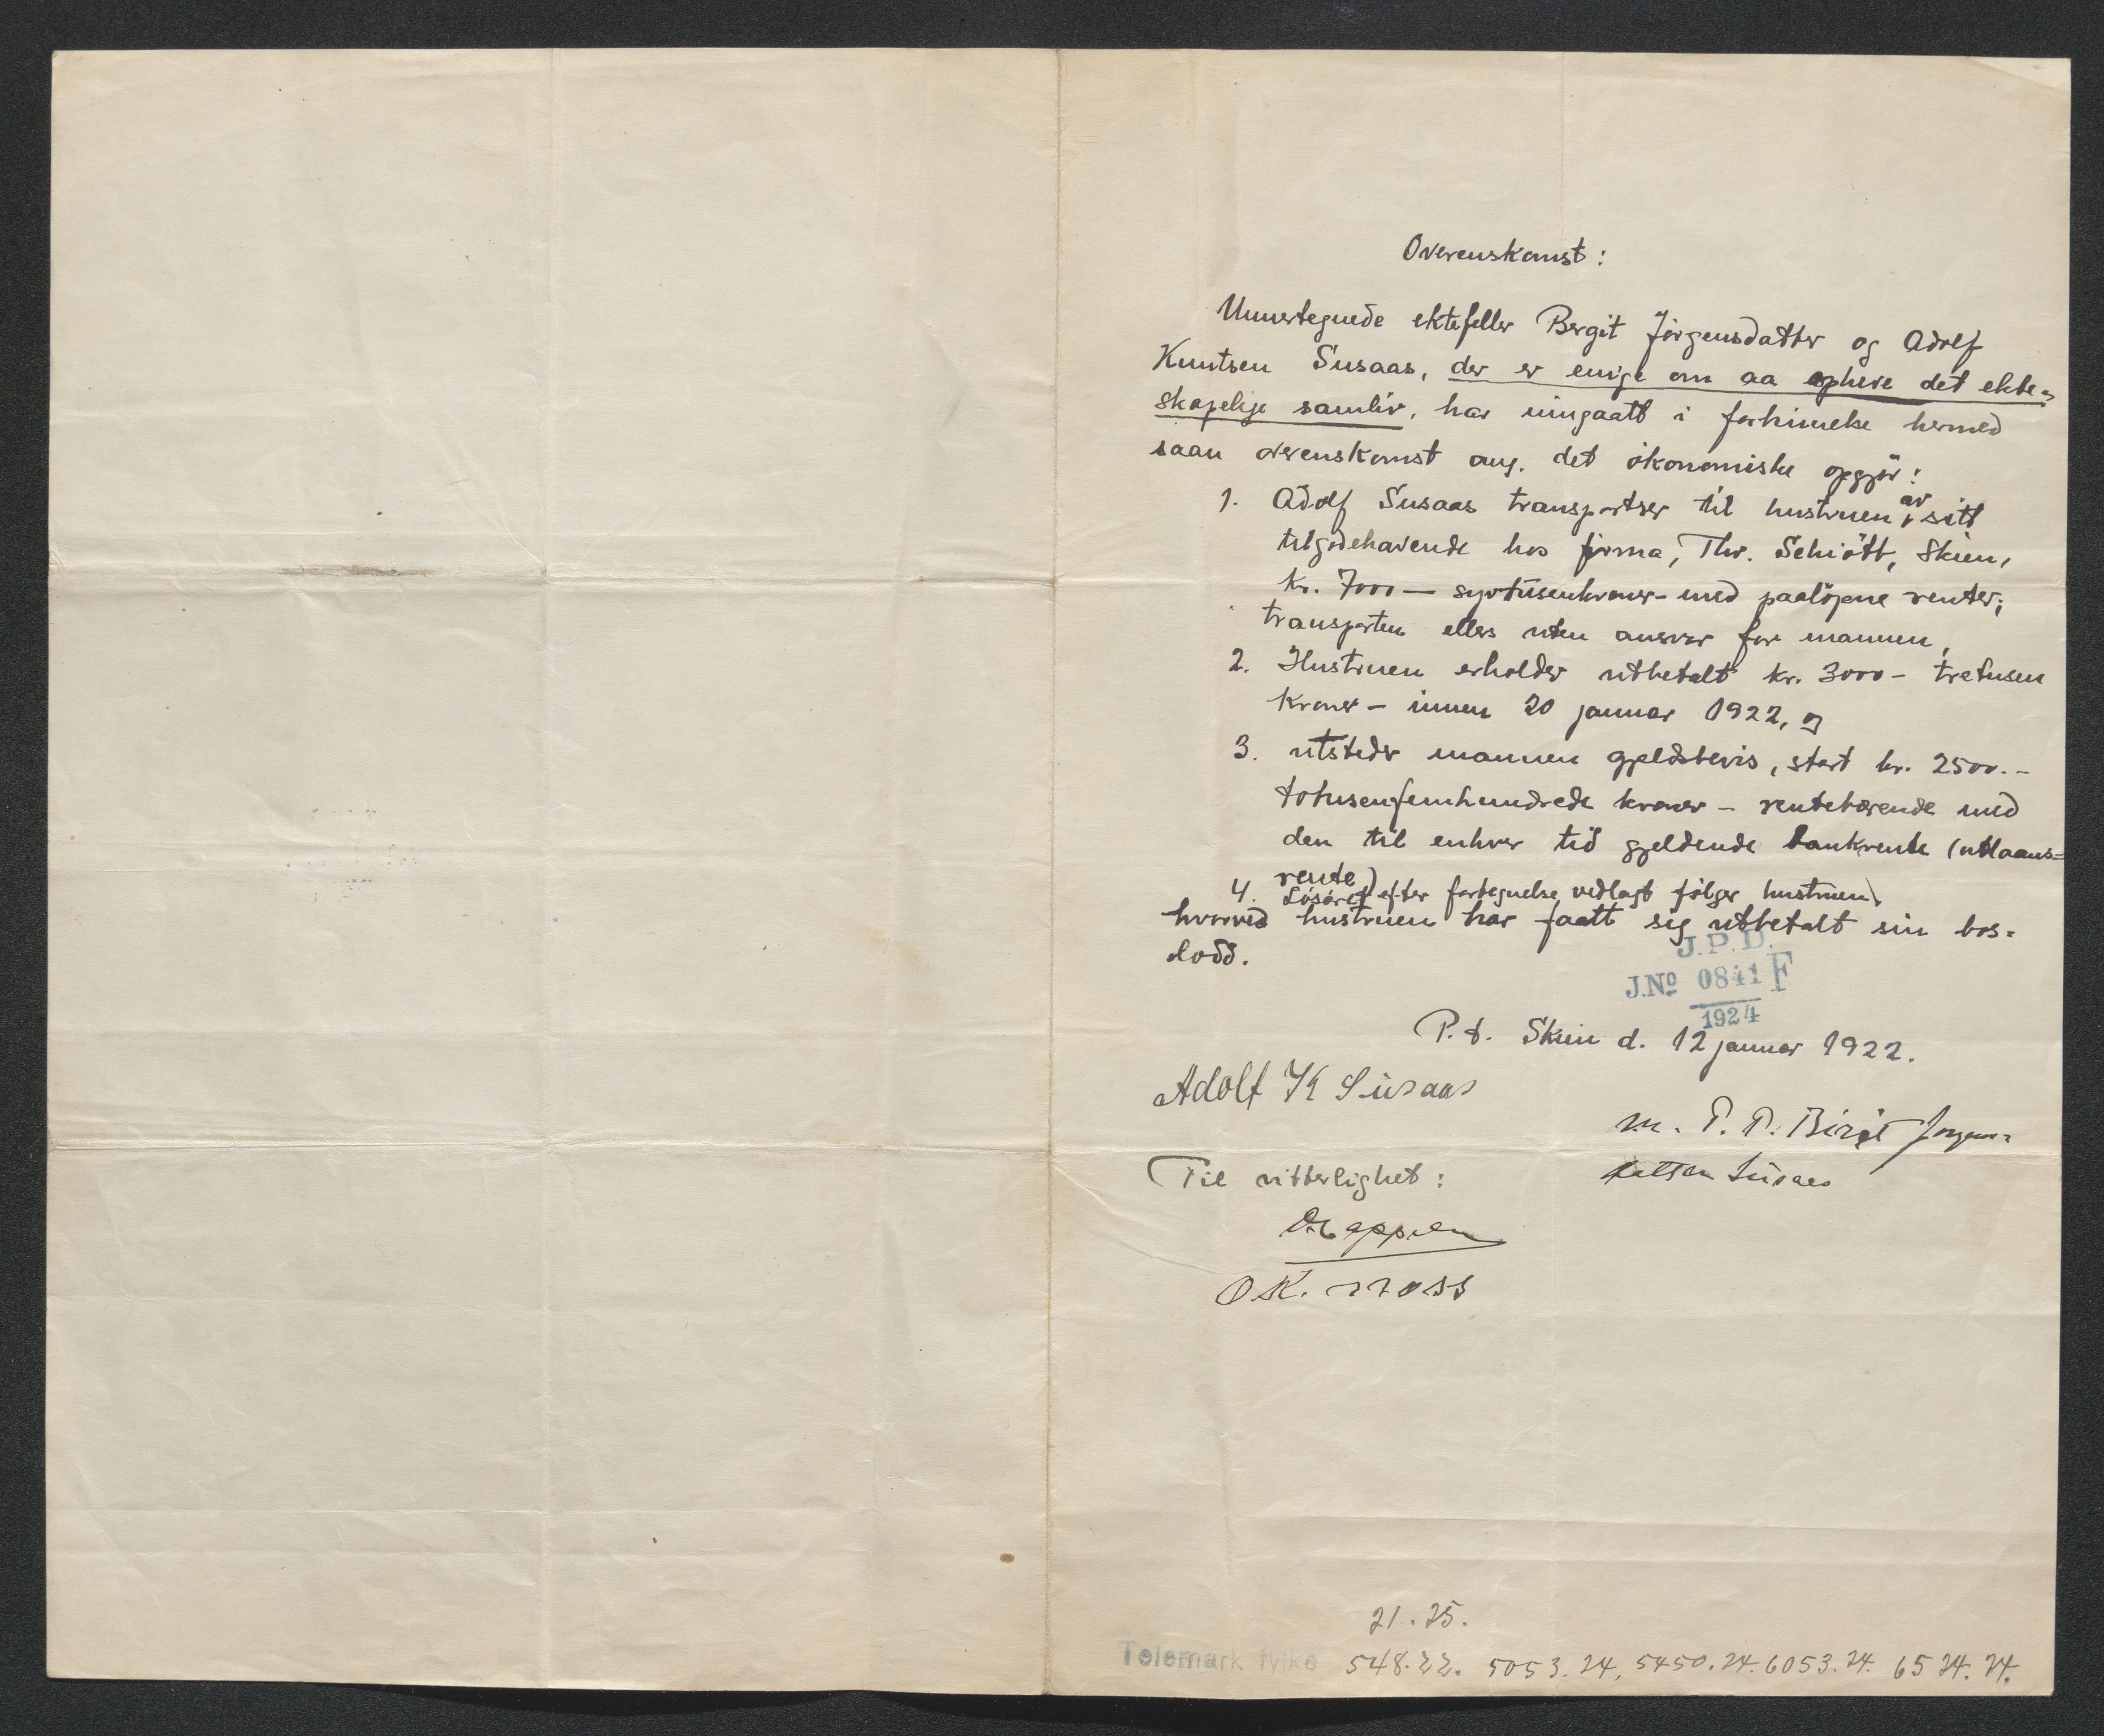 Overenskomst:
Unnertegnede ektefeller Bergit Jörgensdatter og Adolf
Knutsen Susaas, der er enige om aa opheve det ekte-
skapelige samliv, har inngaatt i forbinnelse hermed
saan overenskomst ang. det ökonomiske opgjör:
1. Adolf Susaas transporterer til hustruen av sitt
tilgodehavende hos firma, Thv. Schiött, Skien,
kr. 7000 — syvtusenkroner - med paalöpne renter;
transporten ellers uten ansvar for mannen,
2. Hustruen erholder utbetalt kr. 3000 - tretusen
kroner - innen 20 januar 1922, og
3. utsteder mannen gjeldsbevis, stort kr. 2500.-
totusenfemhundrede kroner - rentebærende med
den til enhver tid gjeldende bankrente (utlaans=
rente)
4. Lösöret efter fortegnelse vedlagt fölger hustruen,
hvorved hustruen har faatt sig utbetalt sin bos=
lodd.
J.P.D.
J.Nº 0841 F
1924
P.t. Skien d. 12 januar 1922.
Adolf K Susaas
m. P. P. Birgit Jorgens=
datter Susaas
Til vitterlighet:
OK. Moss
21.25.
Telemark fylke 548.22. 5053.24, 5450.24. 6053.24. 6524.24.